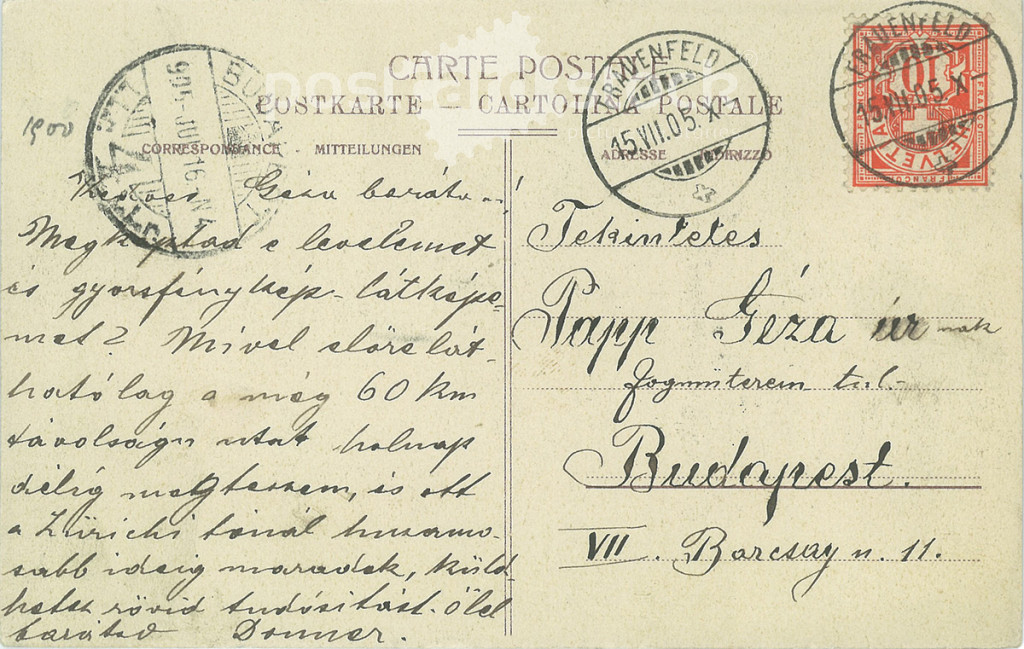 CARTE POSTALE
POSTKARTE — CARTOLINA POSTALE
CORRESPONDANCE - MITTEILUNGEN
ADRESSE
1900
FRAUENFELD
15.VII.05. X-
FRAUENFELD
15.VII.05. X
10
HELVETIA
BUDA
Géza barátom!
Megkaptad e levelemet
és gyorsfénykép-látképe-
met? Mivel előrelát-
hatólag a még 60 km
távolságu utat holnap
délig megteszem, és ott
a Zürichi tónál huzamo-
sabb ideig maradok, küld-
hetsz rövid tudósitást. Ölel
barátod Donner.
Tekintetes
Papp Géza úr nak
Budapest.
VII. Barcsay u. 11.